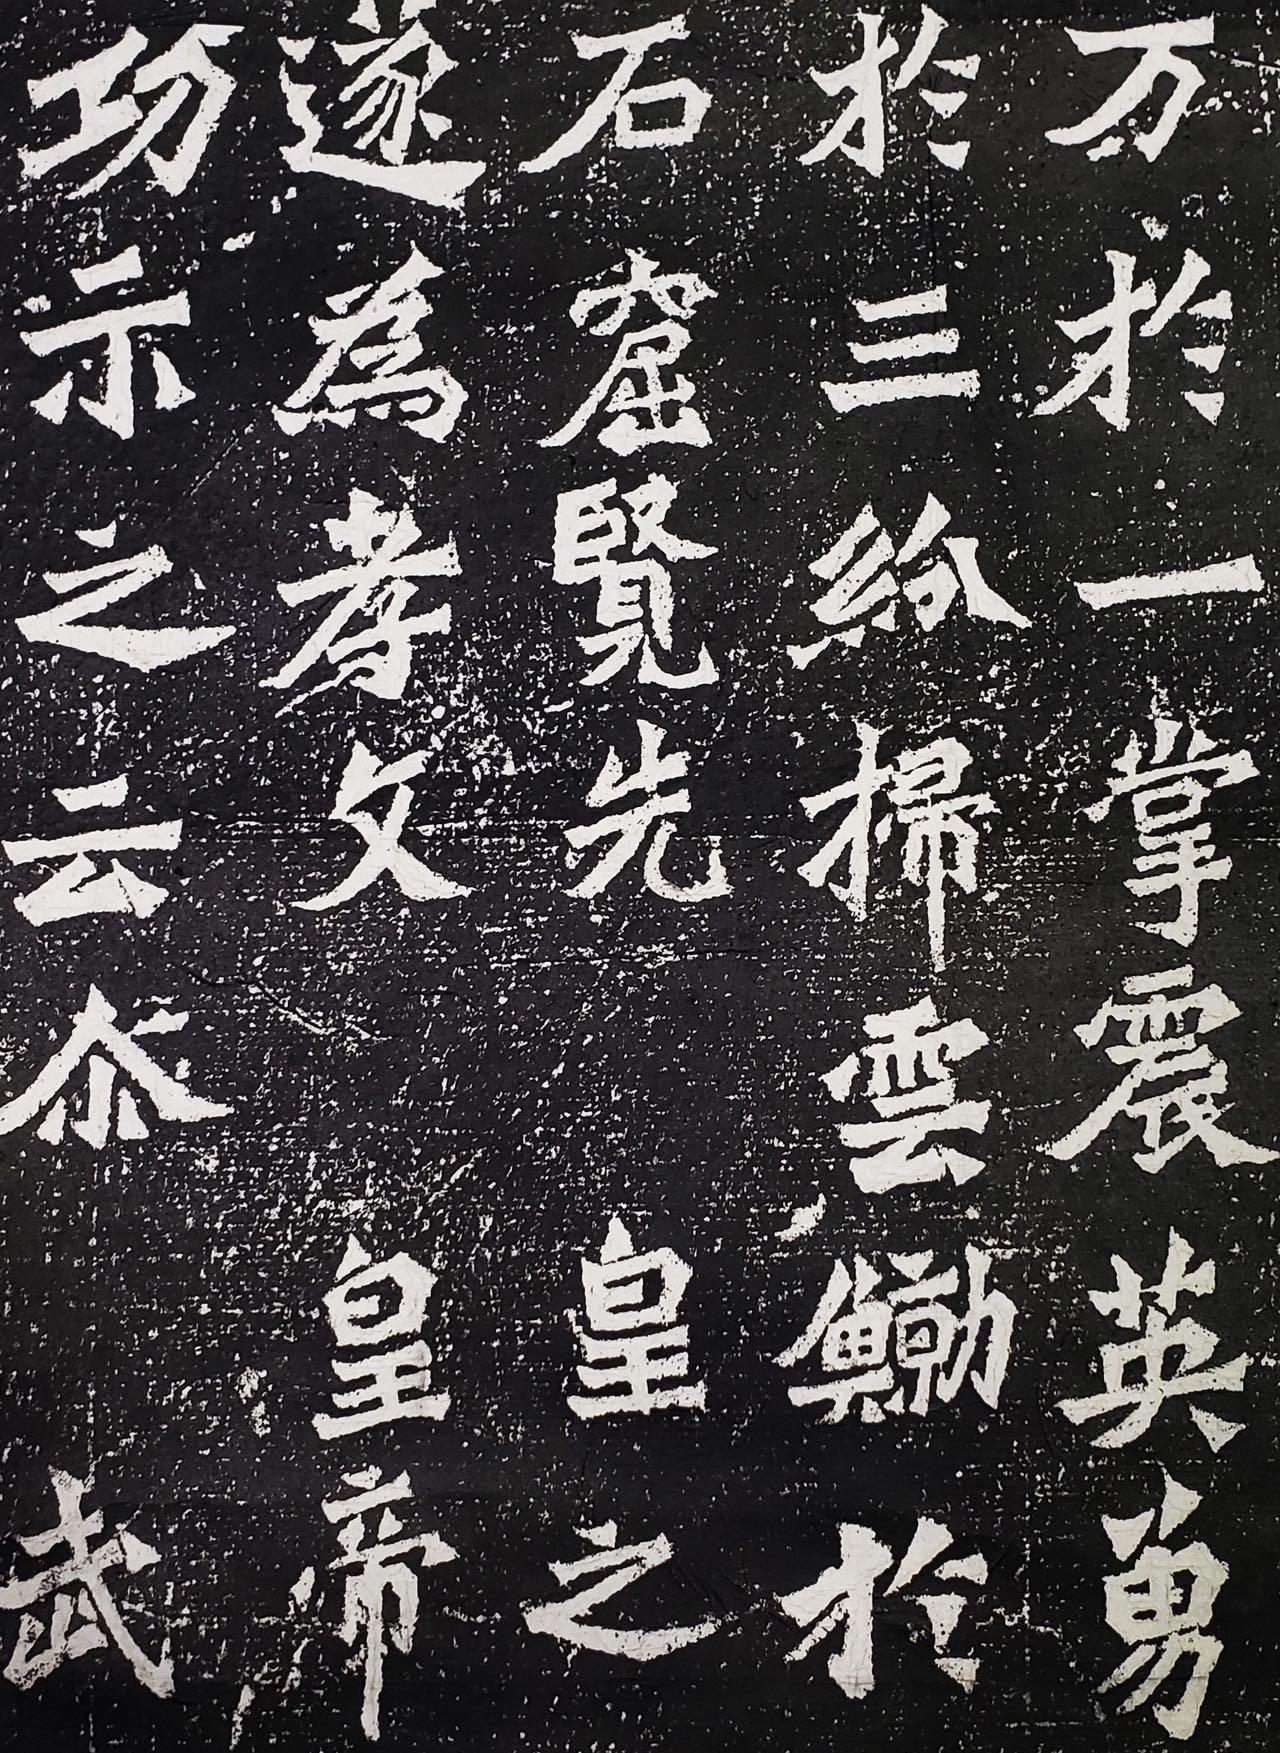 万於一掌震英勇
於三紛掃雲鯨於
石窟覽先皇之
遂為孝文皇帝
功示之云尒武